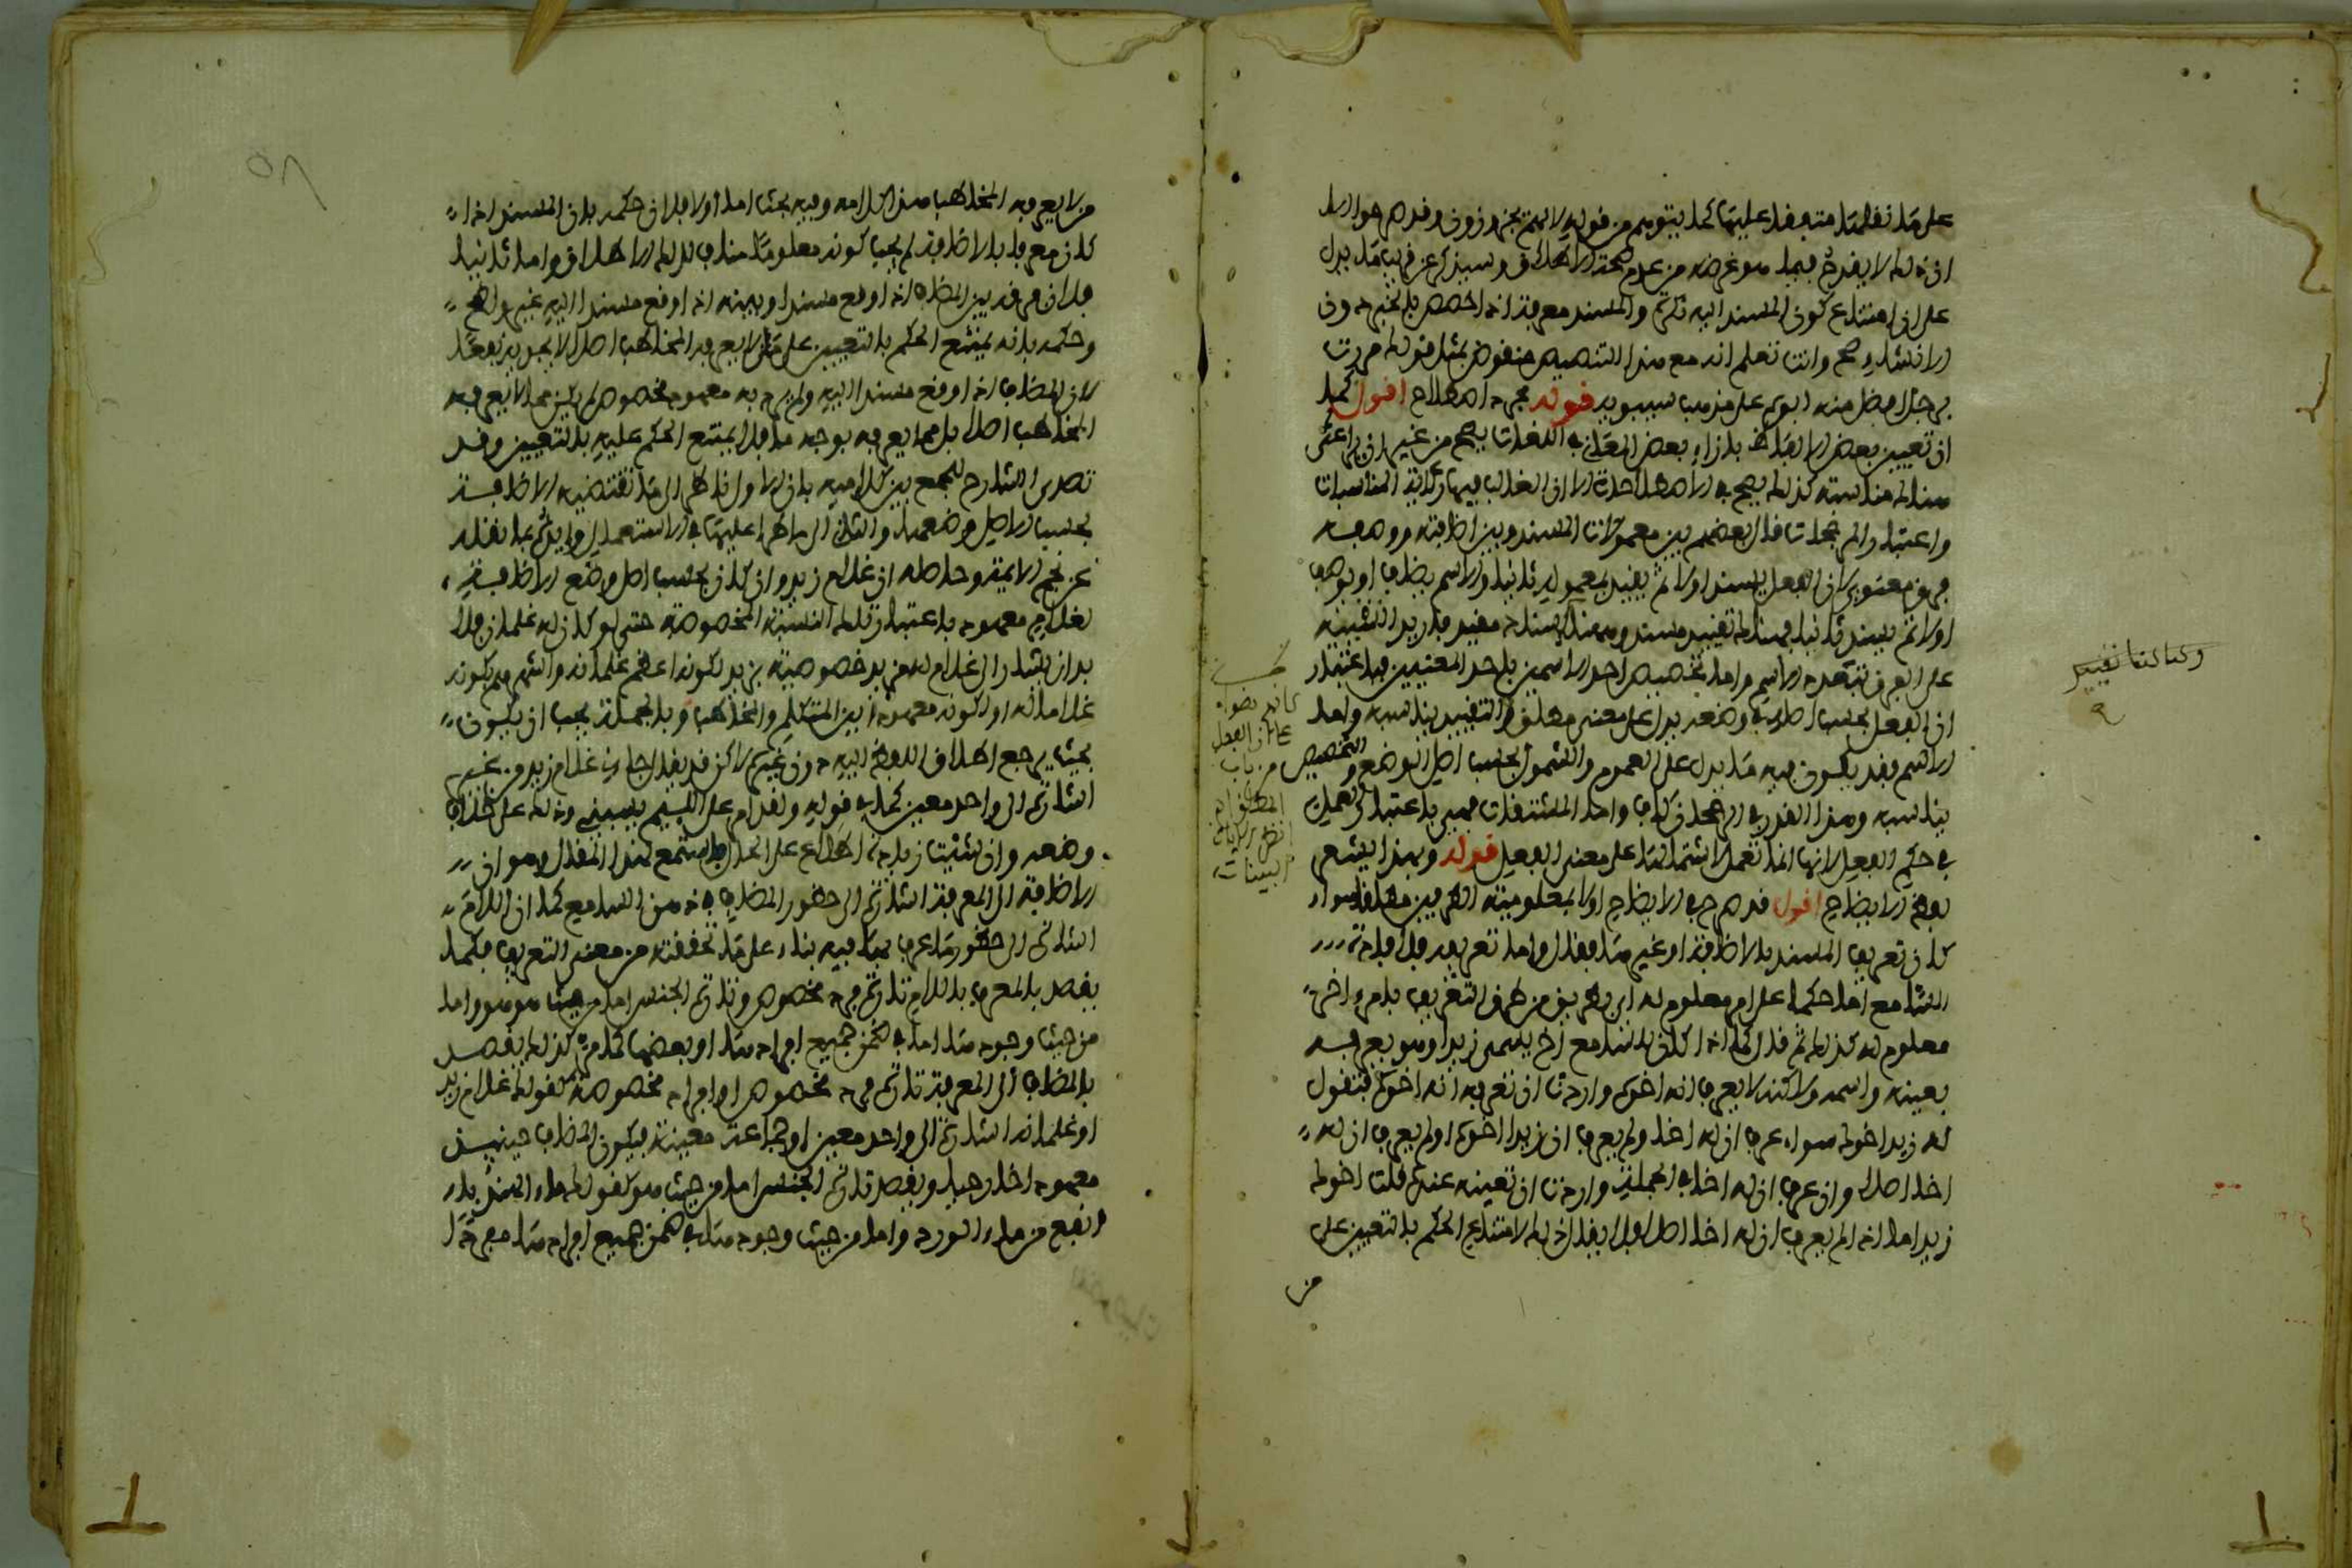 على ما نقلنا متبعا عليها كما يتوهم من قوله لا يمنع بجزء زون وقد مر هو ان
ان ذلك لا يقدح فيما هو غرضه من عدم صحة الاطلاق وسيذكر عن قريب ما يدل
على ان امتناع كون المسند اليه نكرة والمسند معرفة انما هو بالخبر دون
الانشاء وانت تعلم انه مع هذا التنصيص منقوض بمثل قولك مررت
برجل افضل منه ابوه على مذهب سيبويه قوله مجرد اصطلاح اقول كما
ان تعيين بعض الالفاظ بازاء بعض المعاني في اللغات يصح من غير ان يراعى
هناك مناسبة كذلك يصح في الاصطلاحات الا ان الغالب فيها رعاية المناسبات
واعتبار المرجحات قال بعضهم بين معمولات المسند وبين اضافته ووصفه
فرق معنوي لان الفعل يسند اولا ثم يقيد بمعموله ثانيا والاسم يضاف او يوصف
اولا ثم يسند ثانيا فهناك تقييد مسند وههنا اسناد مقيد فاريد التنبيه
على الفرق بتعدد الاسم واما تخصيص احد الاسمين باحد المعنيين فباعتبار
ان الفعل بحسب اصله في وضعه يدل على معنى مطلق والتقييد يناسبه واما
الاسم فقد يكون فيه ما يدل على العموم والشمول بحسب اصل الوضع والتخصيص
يناسبه وهذا القدر في الرجحان كاف واما المشتقات فهي باعتبار العمل
في حكم الفعل لانها انما تعمل لاشتمالها على معنى الفعل قوله وبهذا يشعر
لفظ الايضاح اقول قد صرح في الايضاح اولا بمعلومية الطرفين مطلقا سواء
كان تعريف المسند بالاضافة او غيرها فقال واما تعريفه فلافادة
السامع اما حكما على امر معلوم له باي طريق من طرق التعريف بامر اخر
معلوم له كذلك ثم قال كما اذا كان للسامع اخ يسمى زيدا وهو يعرفه
بعينه واسمه ولاكنه لا يعرف انه اخوه واردت ان تعرفه انه اخوه فتقول
له زيد اخوك سواء عرف ان له اخا ولم يعرف ان زيدا اخوه او لم يعرف ان له
اخا اصلا وان عرف ان له اخا في الجملة واردت ان تعينه عنده قلت اخوك
زيد اما اذا لم يعرف ان له اخا اصلا فلا يقال ذلك لامتناع الحكم بالتعيين على
من
وكذا كتبنا تقييد
من لا يعرفه المخاطب هذا كلامه وفيه بحث اما اولا فلان حكمه بان المسند اذا
كان معرفا بالاضافة لم يجب كونه معلوما مناف لذلك الاطلاق واما ثانيا
فلان فرقه بين المضاف اذا وقع مسندا وبينه اذا وقع مسندا اليه غير واضح
وحكمه بانه يمتنع الحكم بالتعيين على من لا يعرفه المخاطب اصلا لا يجديه نفعا
لان المضاف اذا وقع مسندا اليه ولم يرد به معهود مخصوص لم يكن مما لا يعرفه
المخاطب اصلا بل مما يعرفه بوجه ما فلا يمتنع الحكم عليه بالتعيين وقد
تصدى الشارح للجمع بين كلاميه بان الاول ناظر الى ما تقتضيه الاضافة
بحسب اصل وضعها والثاني الى ما طرا عليها في الاستعمال وايده بما نقله
عن نجم الايمة وحاصله ان غلام زيد وان كان بحسب اصل وضع الاضافة
لغلام معهود باعتبار تلك النسبة المخصوصة حتى لو كان له غلمان فلا
بد ان يشار الى غلام له مزيد خصوصية بزيد لكونه اعظم غلمانه واشهرهم بكونه
غلاما له او لكونه معهودا بين المتكلم والمخاطب وبالجملة يجب ان يكون
بحيث يرجع اطلاق اللفظ اليه دون غيره لاكن قد يقال جاءني غلام زيد من غير
اشارة الى واحد معين كما في قوله ولقد امر على اللئيم يسبني وذلك على خلاف
وضعه وان شئت زيادة اطلاع على الحال فاستمع لهذا المقال وهو ان
الاضافة الى المعرفة اشارة الى حضور المضاف في ذهن السامع كما ان اللام
اشارة الى حضور ما عرف بها فيه بناء على ما تحققته من معنى التعريف فكما
يقصد بالمعرف باللام تارة فرد مخصوص وتارة الجنس اما من حيث هو هو واما
من حيث وجوده اما في ضمن جميع افراده او بعضها كما مر كذلك يقصد
بالمضاف الى المعرفة تارة فرد مخصوص او افراد مخصوصة كقولك غلام زيد
او غلمانه اشارة الى واحد معين او جماعة معينة فيكون المضاف حينئذ
معهودا خارجيا ويقصد تارة الجنس اما من حيث هو كقولك ماء الهندباء
انفع من ماء الورد واما من حيث وجوده في ضمن جميع افراده مفردا